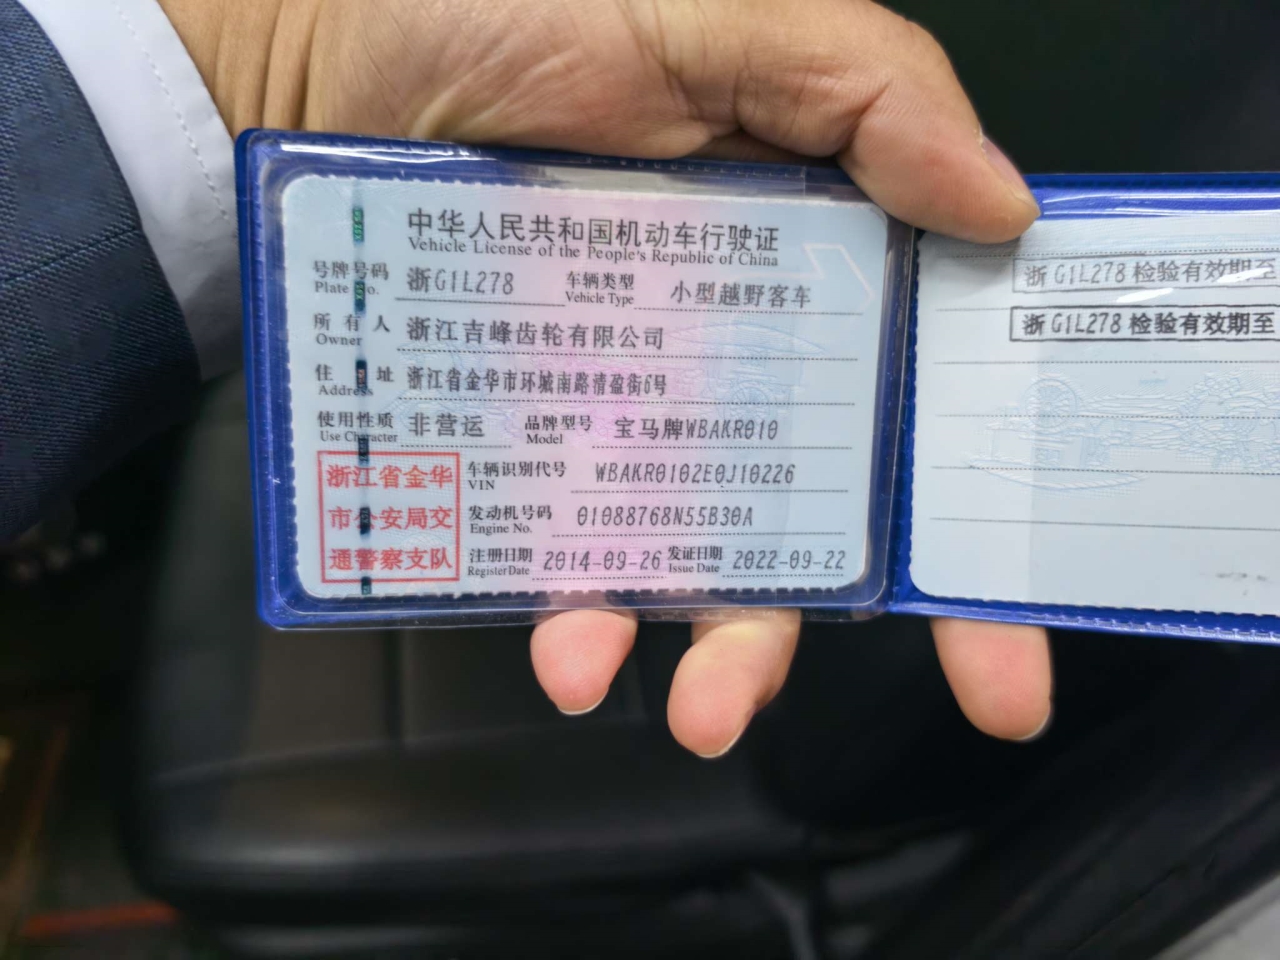 中华人民共和国机动车行驶证
Vehicle License of the People's Republic of China
号牌号码 浙G1L278 车辆类型 小型越野客车
Plate No. Vehicle Type
所有人 浙江吉峰齿轮有限公司
Owner
住址 浙江省金华市环城南路清盈街6号
Address
使用性质 非营运 品牌型号 宝马牌WBAKR010
Use Character Model
浙江省金华
市公安局交
通警察支队
车辆识别代号 WBAKR0102E0J10226
VIN
发动机号码 01088768N55B30A
Engine No.
注册日期 2014-09-26 发证日期 2022-09-22
Register Date Issue Date
浙G1L278检验有效期至
浙G1L278检验有效期至